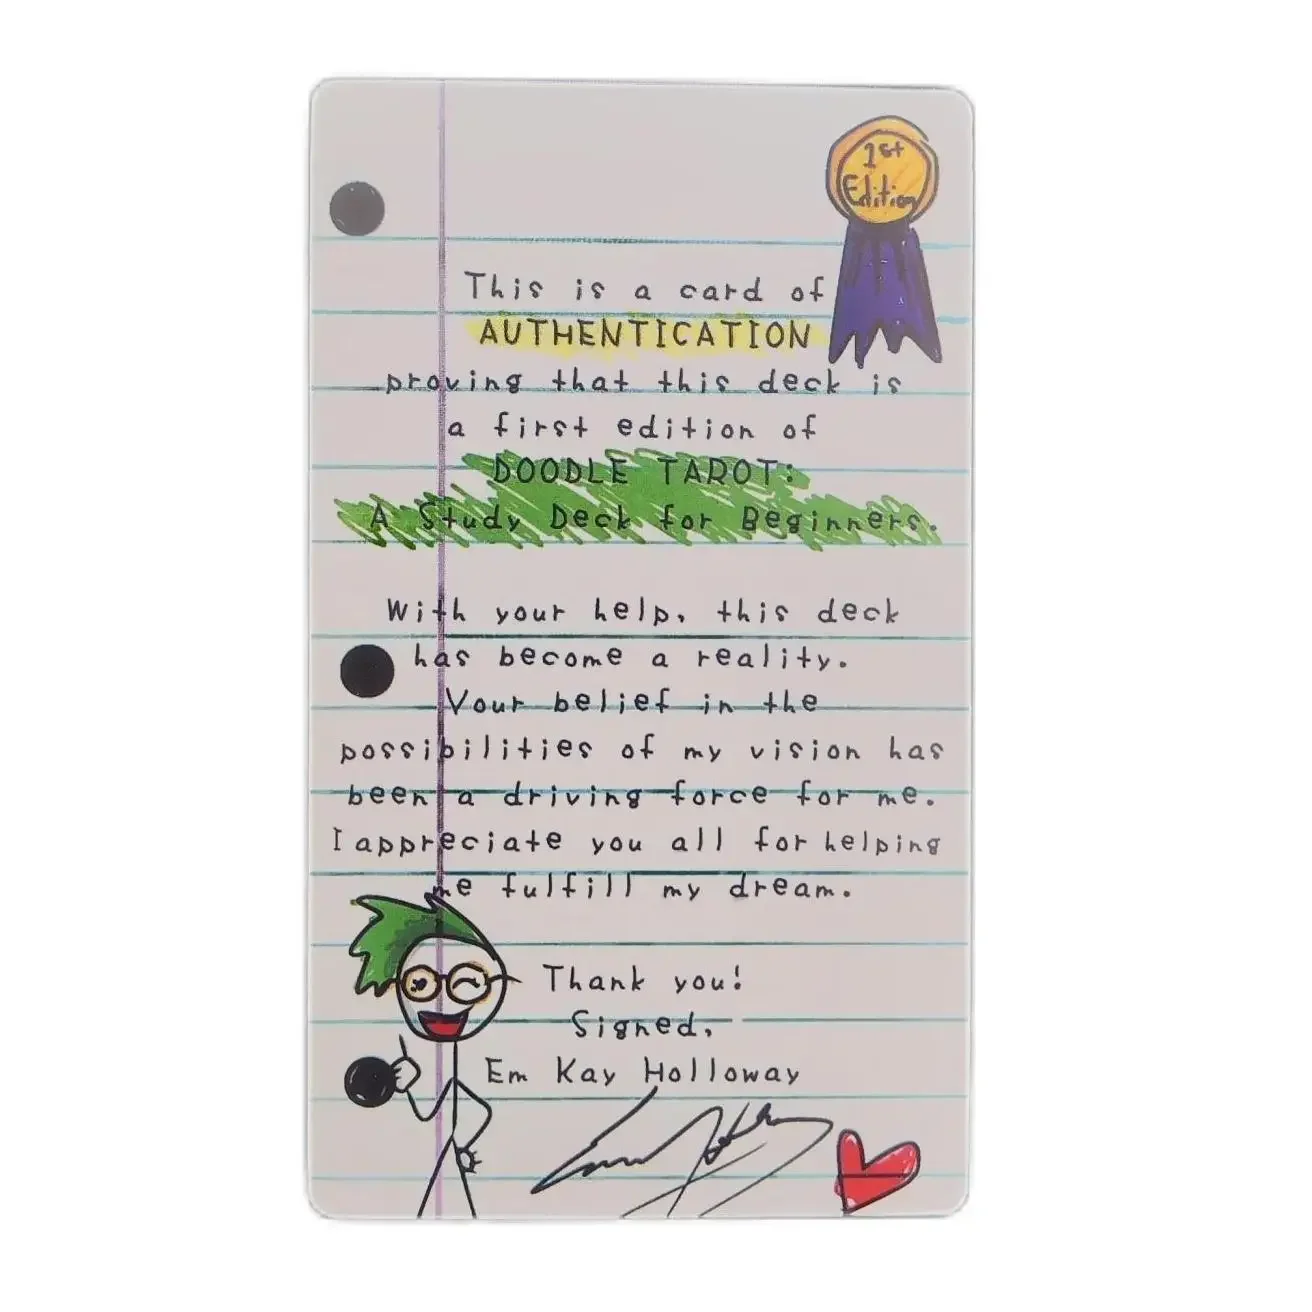 1st
Edition
This is a card of
AUTHENTICATION
proving that this deck is
a first edition of
DOODLE TAROT:
A Study Deck for Beginners.
With your help, this deck
has become a reality.
Your belief in the
possibilities of my vision has
been a driving force for me.
I appreciate you all for helping
me fulfill my dream.
Thank you!
Signed,
Em Kay Holloway